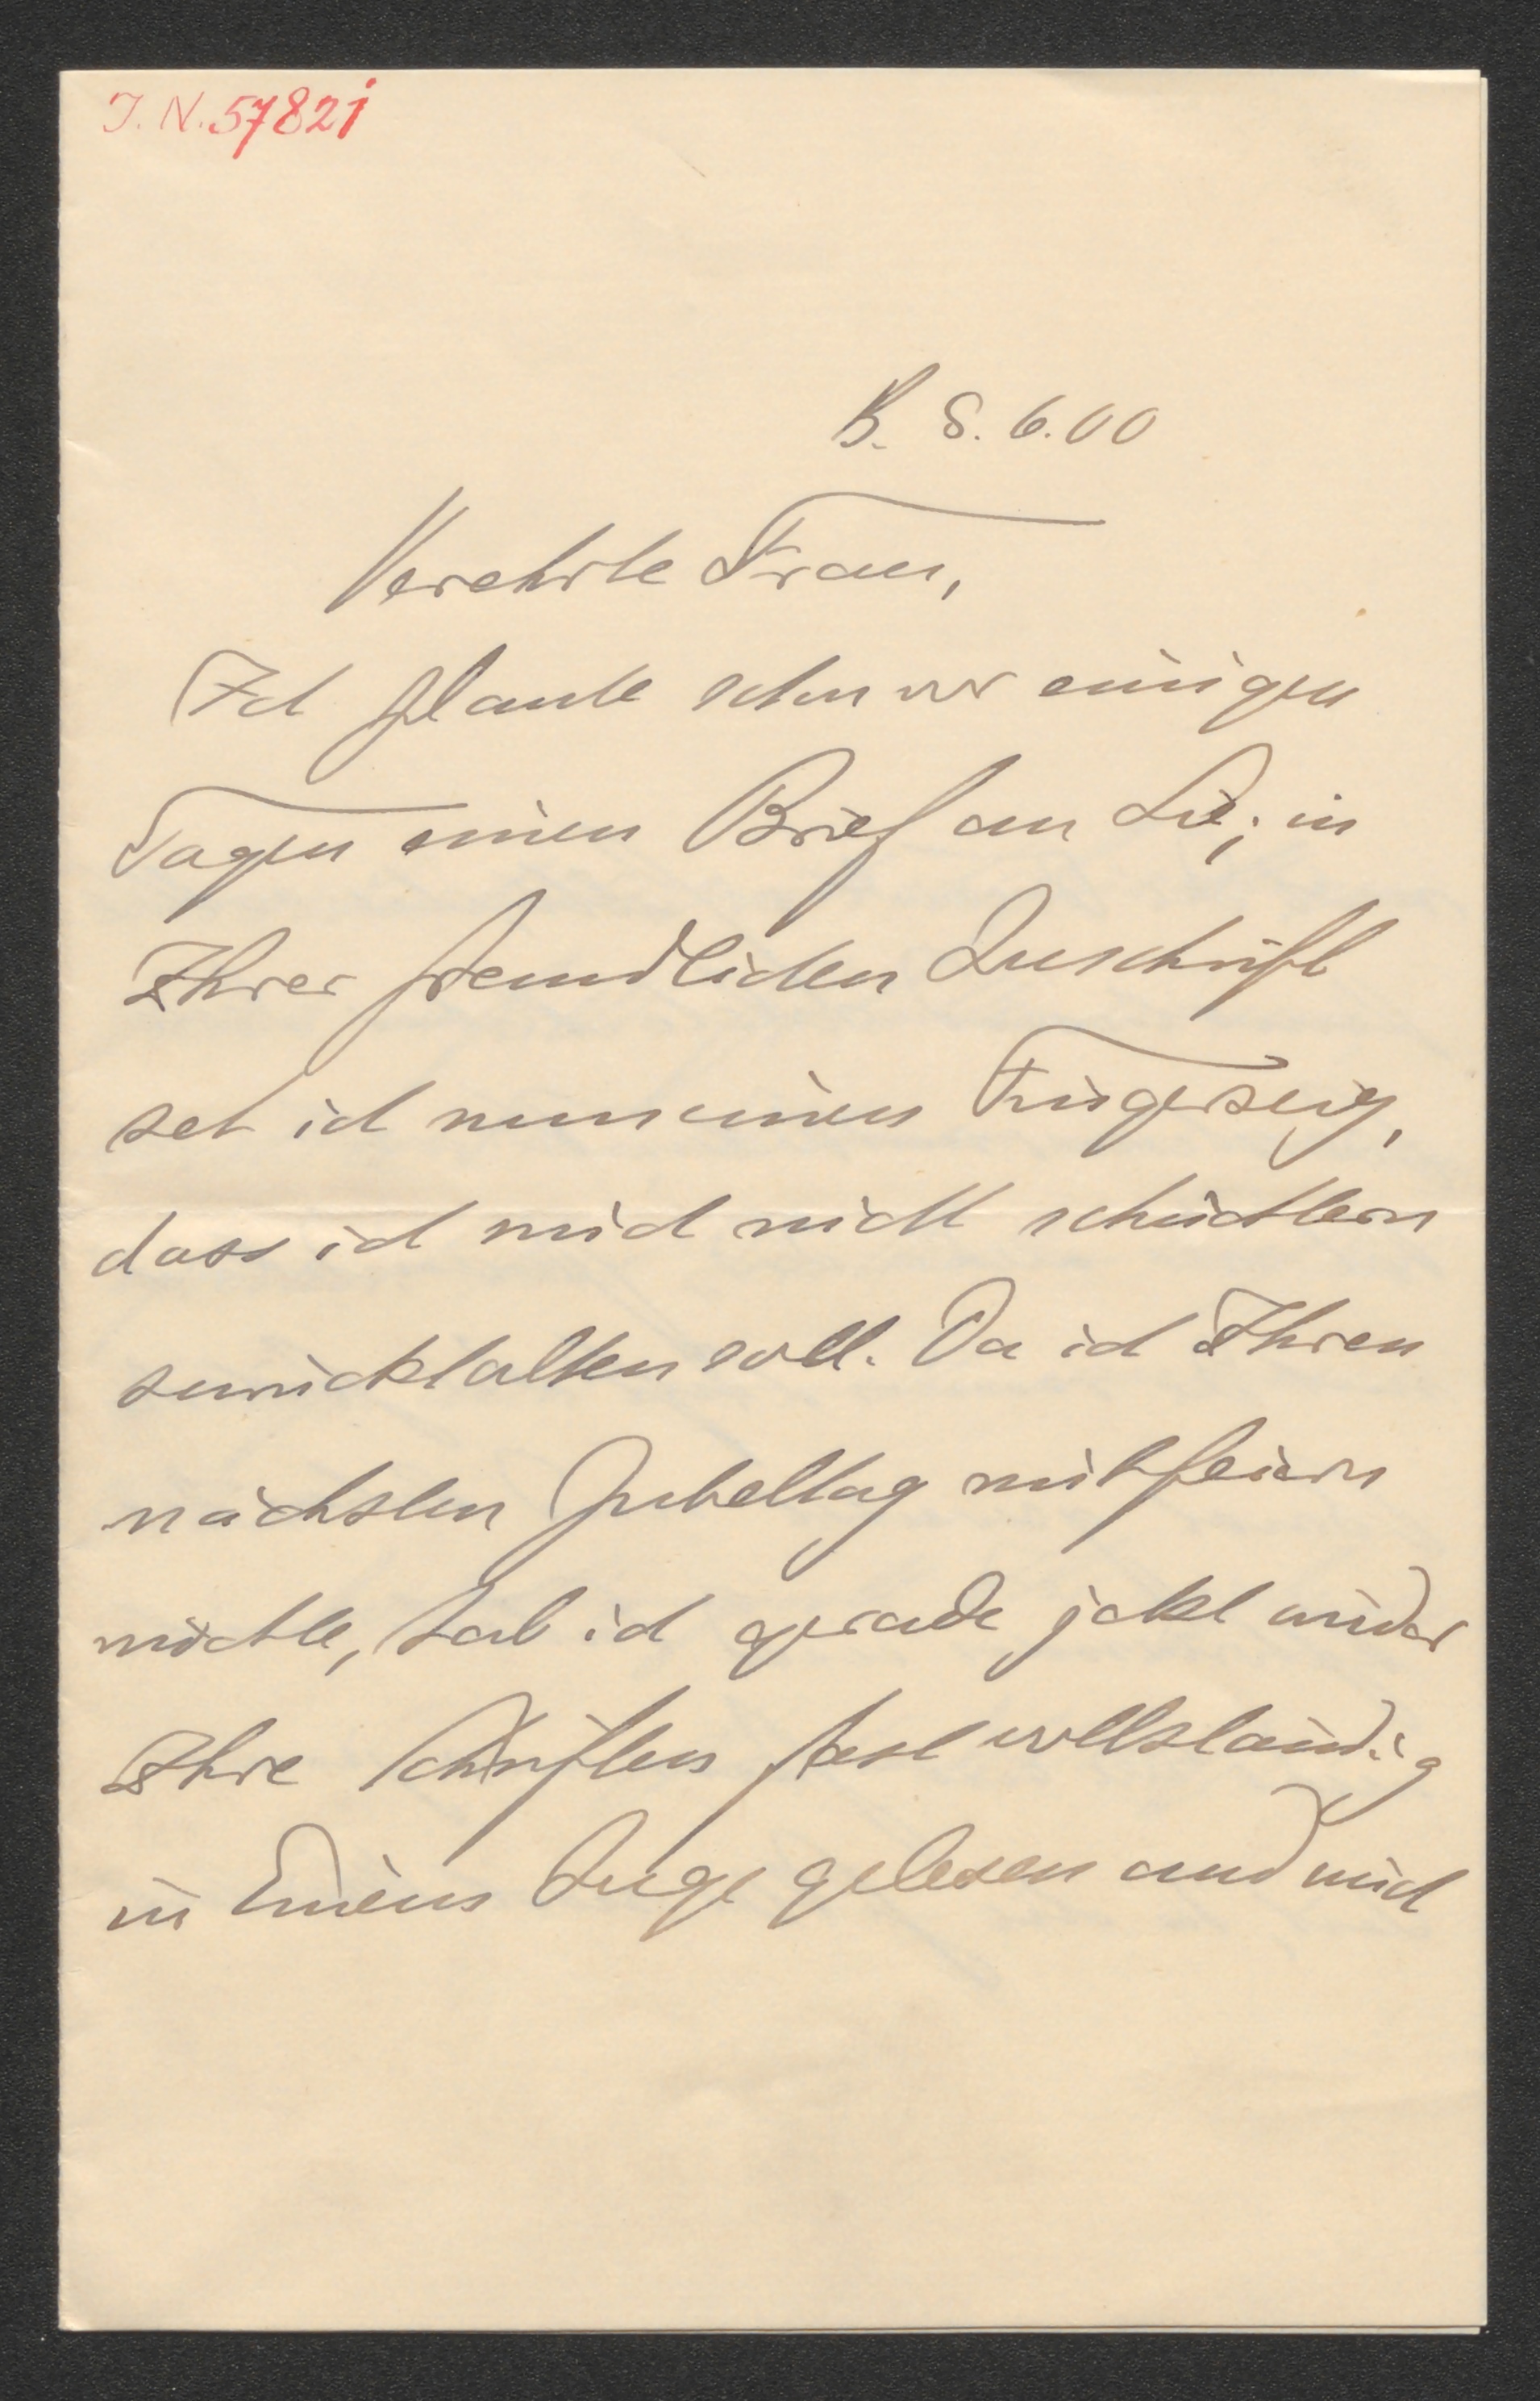 J. N. 57821
B. 8. 6. 00
Verehrte Frau,
Ich plante schon vor einigen
Tagen einen Brief an Sie; in
Ihrer freundlichen Zuschrift
seh ich nun einen Fingerzeig,
dass ich mich nicht schüchtern
zurückhalten soll. Da ich Ihren
nächsten Jubeltag mitfeiern
möchte, hab ich gerade jetzt wieder
Ihre Schriften fast vollständig
in Einem Zuge gelesen und mich